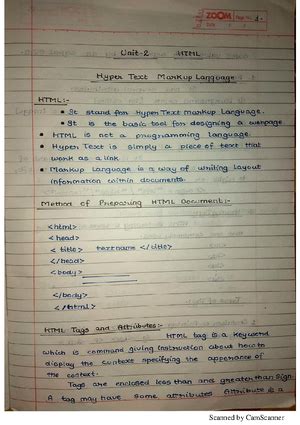 ZOOM
Unit-2 HTML
Hyper Text Markup Language
HTML:-
• It stand for Hyper Text Markup Language.
• It is the basic tool for designing a webpage.
• HTML is not a programming language.
• Hyper Text is simply a piece of text that
work as a link.
• Markup Language is a way of writing layout
information within documents.
Method of Preparing HTML Document:-
<html>
<head>
<title> textname </title>
</head>
<body>
</body>
</html>
HTML Tags and Attributes:-
HTML tag is a keyword
which is command giving instruction about how to
display the context specifying the apperance of
the context.
Tags are enclosed less than and greater than sign
A tag may have some attributes Attribute is a
Scanned by CamScanner